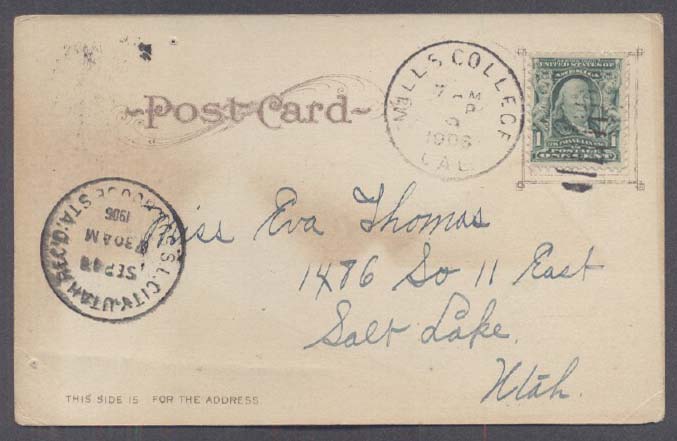 Post Card
MILLS COLLEGE
1906
CAL.
UNITED STATES OF
AMERICA
1 1
POSTAGE
ONE CENT
S.L. CITY, UTAH REC'D.
SEP
730 AM
1906
Miss Eva Thomas
1476 So 11 East
Salt Lake.
Utah.
THIS SIDE IS FOR THE ADDRESS.